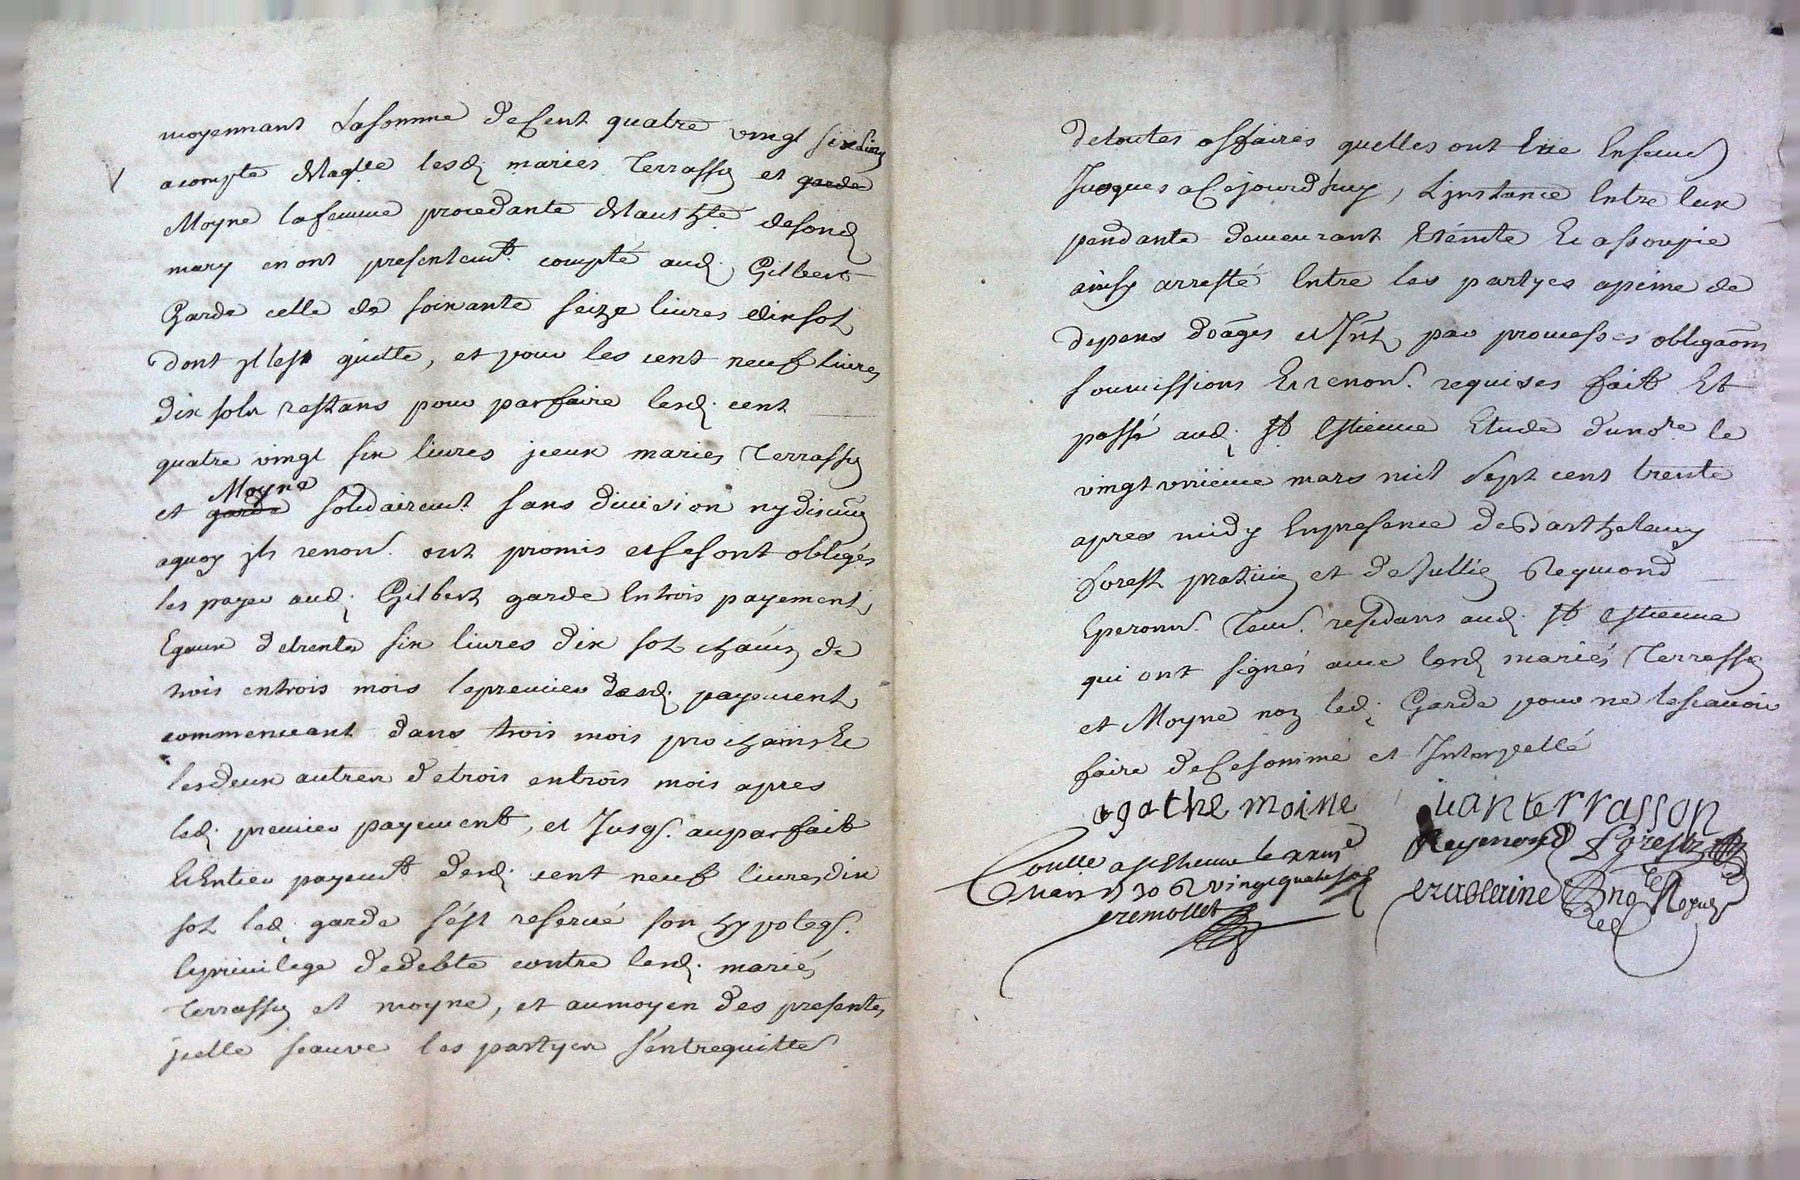 moyennant La somme de Cent quatre vingt six livres
acompte de laqlle lesd. mariés Terrasson et garde
Moyne la femme procedante de lauthté de sond.
mary en ont presentemt. compté aud. Gilbert
Garde celle de soixante seize livres dix sol
dont yl lesr quitte, et pour les cent neuf livres
dix sols restans pour parfaire lesd. cent
quatre vingt six livres jceux mariés Terrasson
Moyne
et garde solidairemt sans division ny discuon
aquoy jls renon. ont promis et se sont obligés
les payer aud. Gilbert garde En trois payements
Egaux de trente six livres dix sol chacun de
trois en trois mois le premier desd. payements
commencant dans trois mois prochains Et
les deux autres de trois en trois mois apres
led. premier payement, et Jusq. au parfait
Et Entier payemt. desd. cent neuf livres dix
sol led. garde s'est reservé son hypoteq.
le privilege de debte contre lesd. mariés
Terrasson et moyne, et au moyen des presentes
jcelle sauve les partyes s'entrequitte
de toutes affaires quelles ont Eüe Ensemble
Jusques a Cejourdhuy, L'jnstance Entre Eux
pendante demeurant Eteinte Et assoupie
ainsy arresté Entre les partyes apeine de
depens doãges et Jnt. par promesses obligaõns
soumissions Et renon. requises fait Et
passé aud. St Estienne Etude du nore le
vingt uniéme mars mil sept cent trente
apres midy En presence de Barthelemy
forest praticien et de Jullien Reymond
Eperonr. Tem. residans aud. St Estienne
qui ont signés avec lesd. mariés Terrasson
et Moyne non led. Garde pour ne le scavoir
faire de Ce sommé et Interpellé
agathe moine juan terrasson
Reymond Forest
Con.lle a st Etienne le xxiije
Mars 1730 R vingt quatre sols